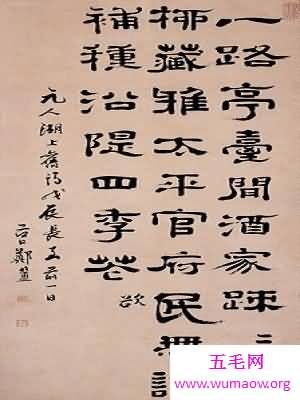 一路亭臺間酒家疎二
柳藏雅太平官府民無訟
補種沿隄四季花 欲
元人湖上舊詩戊辰長至前一日
谷口鄭簠
五毛网
www.wumaow.org